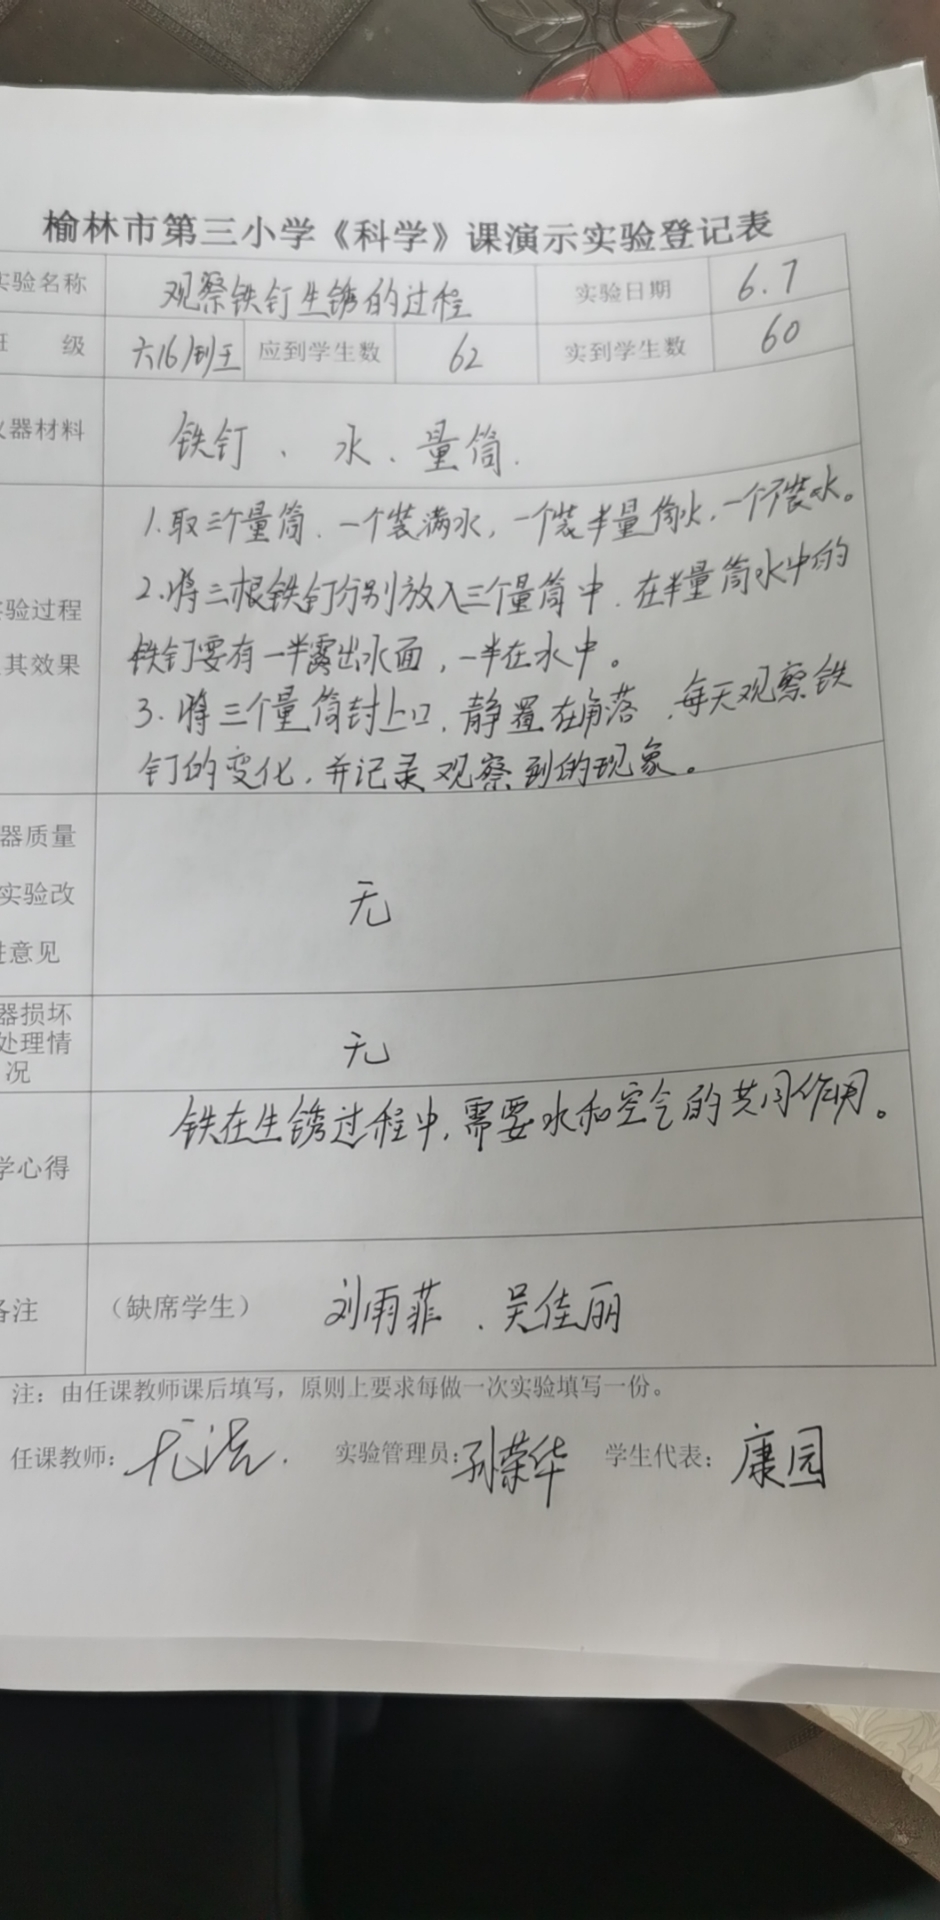 榆林市第三小学《科学》课演示实验登记表
实验名称 观察铁钉生锈的过程 实验日期 6.7
级 六16)班王 应到学生数 62 实到学生数 60
器材料 铁钉、水、量筒.
1.取三个量筒.一个装满水,一个装半量筒水,一个不装水。
2.将三根铁钉分别放入三个量筒中.在半量筒水中的
验过程
铁钉要有一半露出水面,一半在水中。
其效果
3.将三个量筒封上口,静置在角落,每天观察铁
钉的变化,并记录观察到的现象。
器质量
实验改
意见
无
器损坏
处理情
况
无
铁在生锈过程中,需要水和空气的共同作用。
学心得
备注 (缺席学生) 刘雨菲、吴佳丽
注:由任课教师课后填写,原则上要求每做一次实验填写一份。
任课教师: 尤浩. 实验管理员: 孙荣华 学生代表: 康园